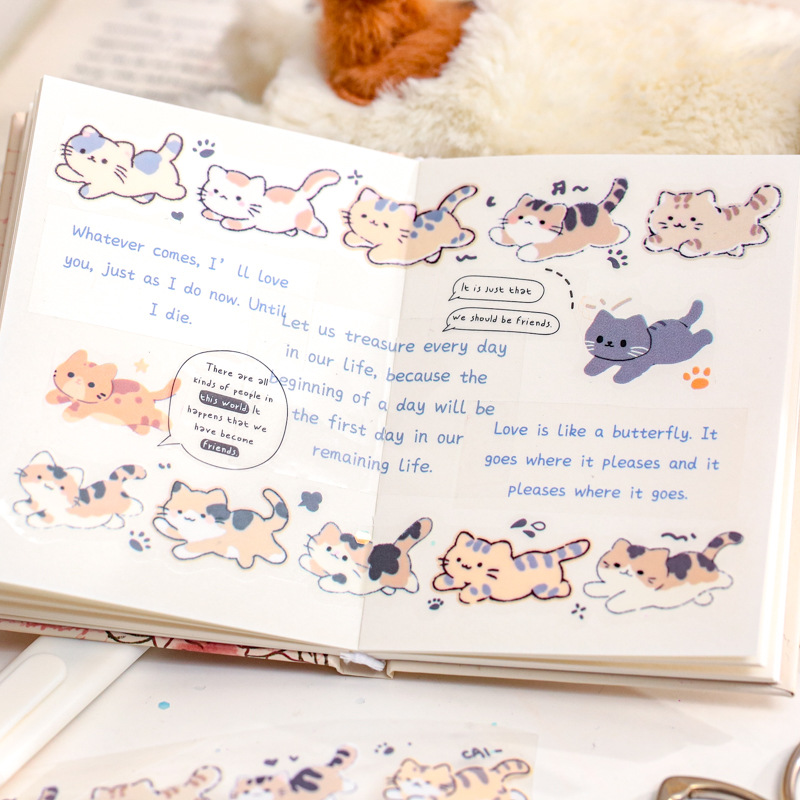 Whatever comes, I' ll love
you, just as I do now. Until
I die.
There are all
kinds of people in
this world It
happens that we
have become
friends
Let us treasure every day
in our life, because the
beginning of a day will be
the first day in our
remaining life.
It is just that
we should be friends.
Love is like a butterfly. It
goes where it pleases and it
pleases where it goes.
CAI~